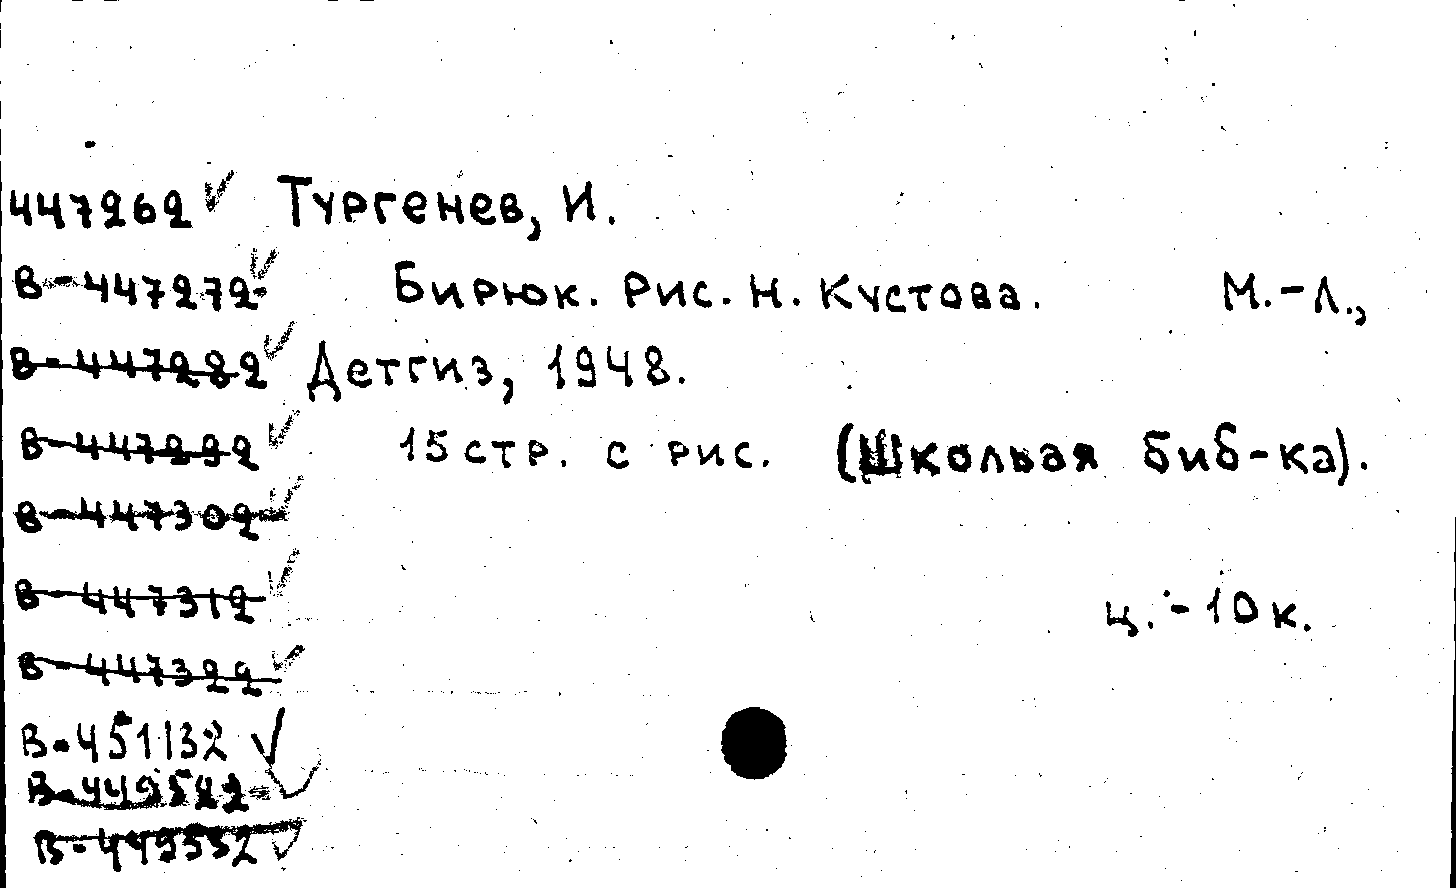 447262 Тургенев, И.
В-447272 Бирюк. Рис. Н. Кустова. М.-Л.,
В-447282 Детгиз, 1948.
В-447292 15 стр. с рис. (Школьая биб-ка).
В-447302
В-447312 ц.-10к.
В-447322
В-451132
В-449522
В-449532